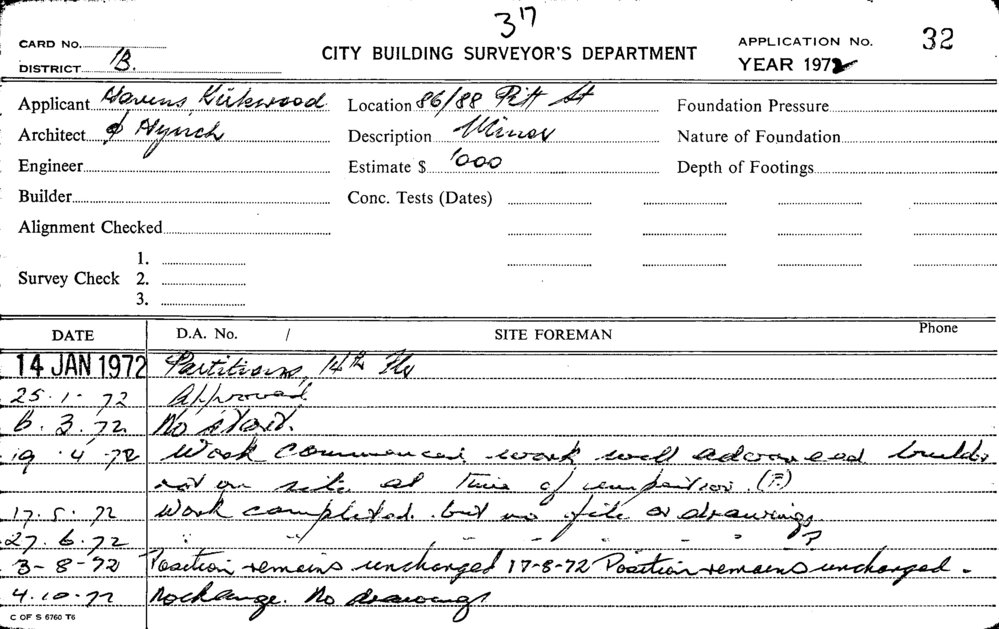 317
CARD NO.
CITY BUILDING SURVEYOR'S DEPARTMENT
APPLICATION No. 32
DISTRICT B.
YEAR 1972
Applicant Kirkwood
Location 86/88 Pitt St
Foundation Pressure
Architect &
Description Minor
Nature of Foundation
Engineer
Estimate $ '000
Depth of Footings
Builder
Conc. Tests (Dates)
Alignment Checked
1.
Survey Check 2.
3.
DATE D.A. No. / SITE FOREMAN Phone
14 JAN 1972 Partitions, 14th Flr
25.1.72 Approved
6.3.72 No start.
19.4.72 Work commenced work well advanced builder
not on site at time of inspection. (F.)
17.5.72 Work completed. but no file or drawings
27.6.72 " " " " " " ?
3-8-72 Position remains unchanged 17-8-72 Position remains unchanged.
4.10.72 No change. No drawings
C OF S 6760 T6